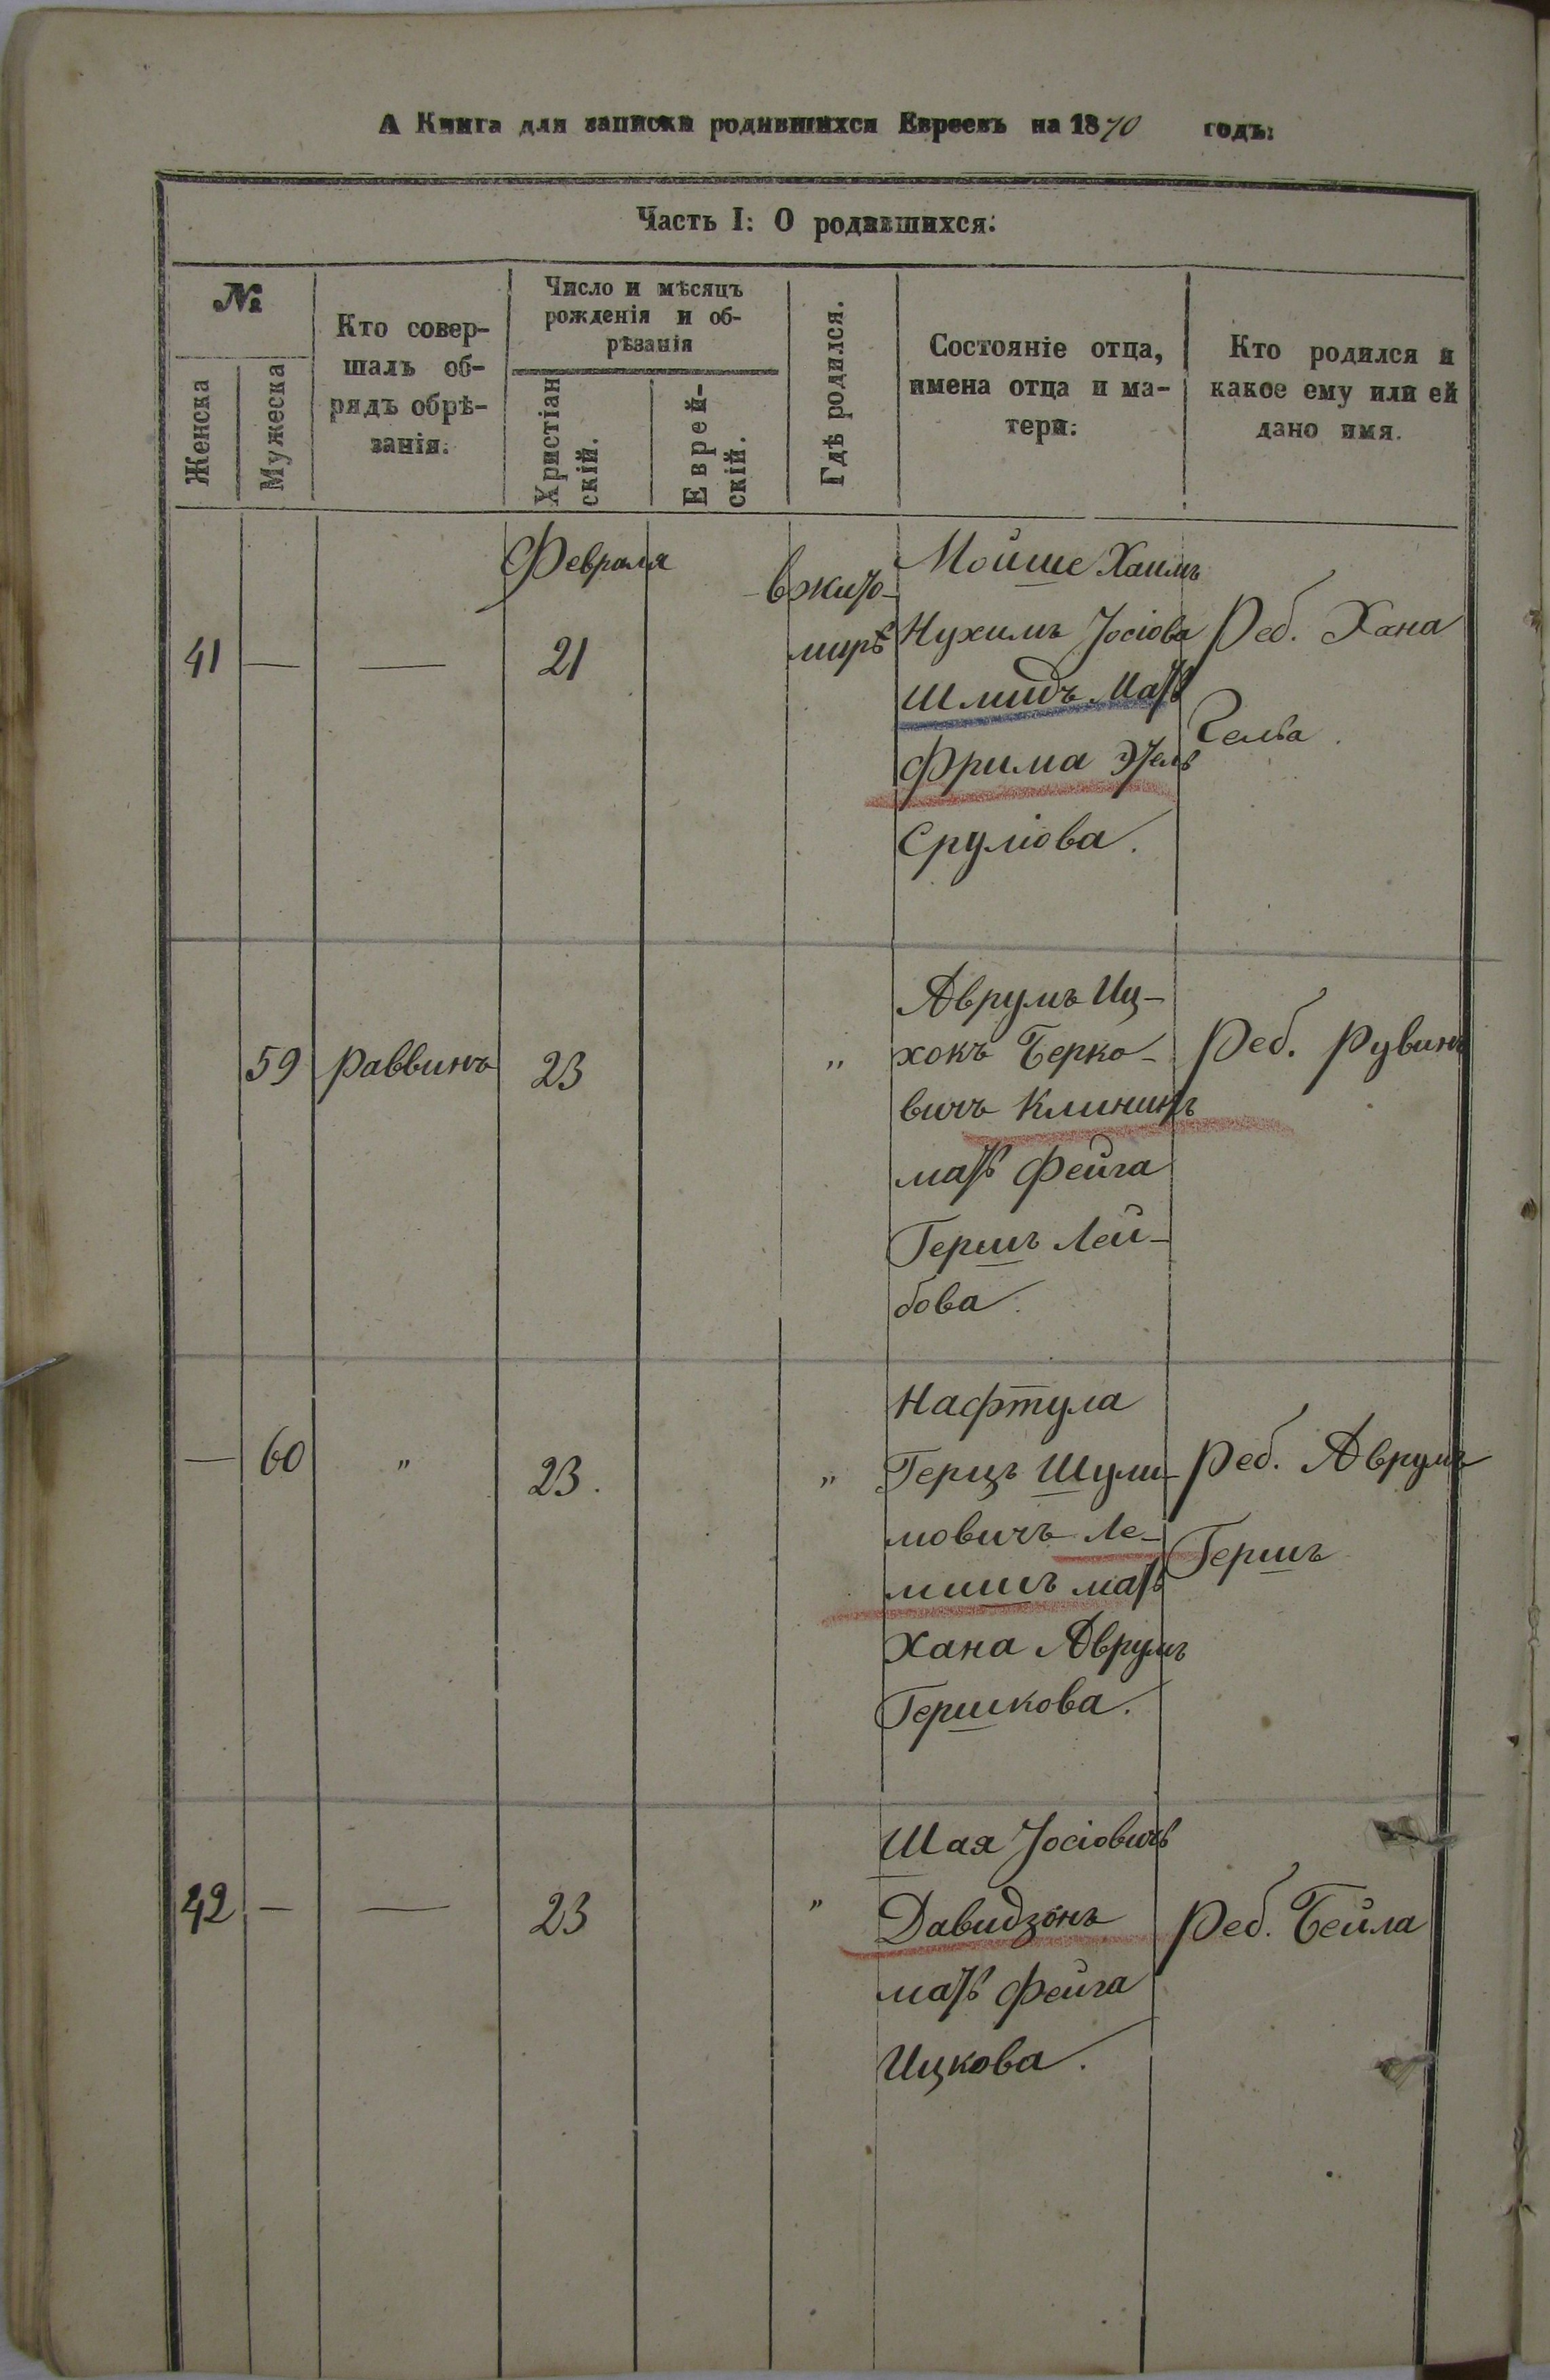 А Книга для записки родившихся Евреевъ на 1870 годъ:
Часть I: О родившихся:
№
Женска
Мужеска
Кто совер-
шалъ об-
рядъ обрѣ-
занія:
Число и мѣсяцъ
рожденія и об-
рѣзанія
Христіан
скій.
Еврей-
скій.
Гдѣ родился.
Состояніе отца,
имена отца и ма-
тери:
Кто родился и
какое ему или ей
дано имя.
Февраля
41 — — 21
в Жито-
мирѣ
Мойше Хаимъ
Нухимъ Іосіова
Шмидъ Мать
Фрима Этель
Сруліова.
Реб. Хана
59 Раввинъ 23 „
Аврумъ Иц-
хокъ Берко-
вичъ Клининъ
мать Фейга
Гершъ Лей-
бова.
Реб. Рувинъ
— 60 „ 23. „
Нафтула
Герцъ Шули-
мовичъ Ле-
мишъ мать
Хана Аврумъ
Гершкова.
Реб. Аврумъ
Гершъ
42 — — 23 „
Шая Іосіовичъ
Давидзонъ
мать Фейга
Ицкова.
Реб. Бейла